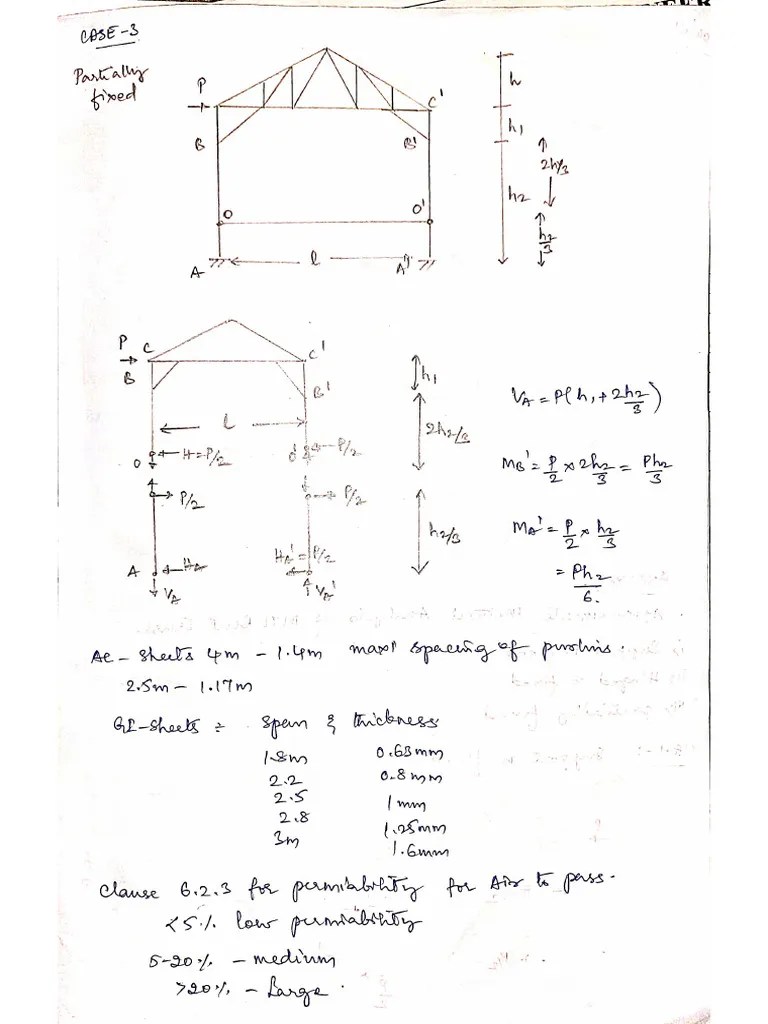 CASE-3
Partially
fixed
P
C'
B
B'
O
O'
A
l
A'
h
h1
h2
2h2/3
h2/3
P
C
C'
B
B'
l
O
H=P/2
O'
P/2
P/2
P/2
A
HA
HA' = P/2
A
VA
VA'
h1
2h2/3
h2/3
VA = P(h1 + 2h2/3)
MB' = P/2 × 2h2/3 = Ph2/3
MA' = P/2 × h2/3
= Ph2/6.
AC - Sheets 4m - 1.4m maxm spacing of purolins.
2.5m - 1.17m
GI-Sheets ÷ Span & thickness
1.8m 0.63mm
2.2 0.8mm
2.5 1mm
2.8 1.25mm
3m 1.6mm
Clause 6.2.3 for permiability for Air to pass.
<5% low permiability
5-20% - medium
>20% - Large.